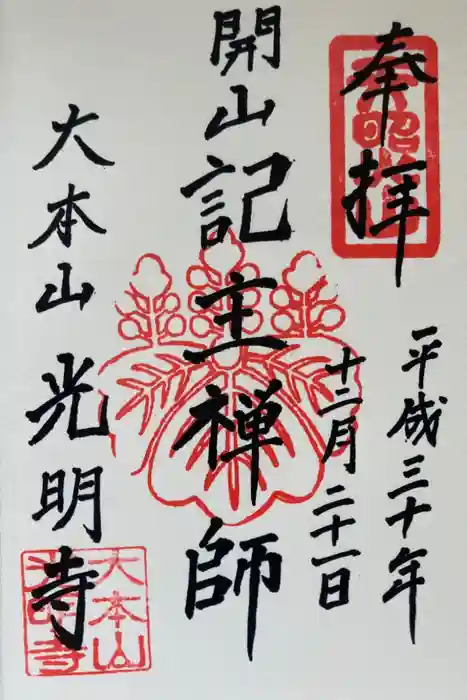 奉拝
平成三十年
十二月二十一日
開山記主禅師
大本山光明寺
大本山
光明寺